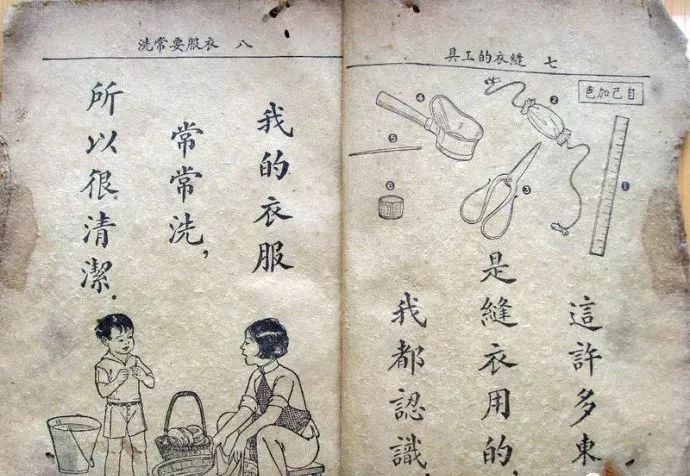 七 縫衣的工具
自己加色
❶
❷
❸
❹
❺
❻
這許多東
是縫衣用的,
我都認識.
八 衣服要常洗
我的衣服
常常洗,
所以很清潔.